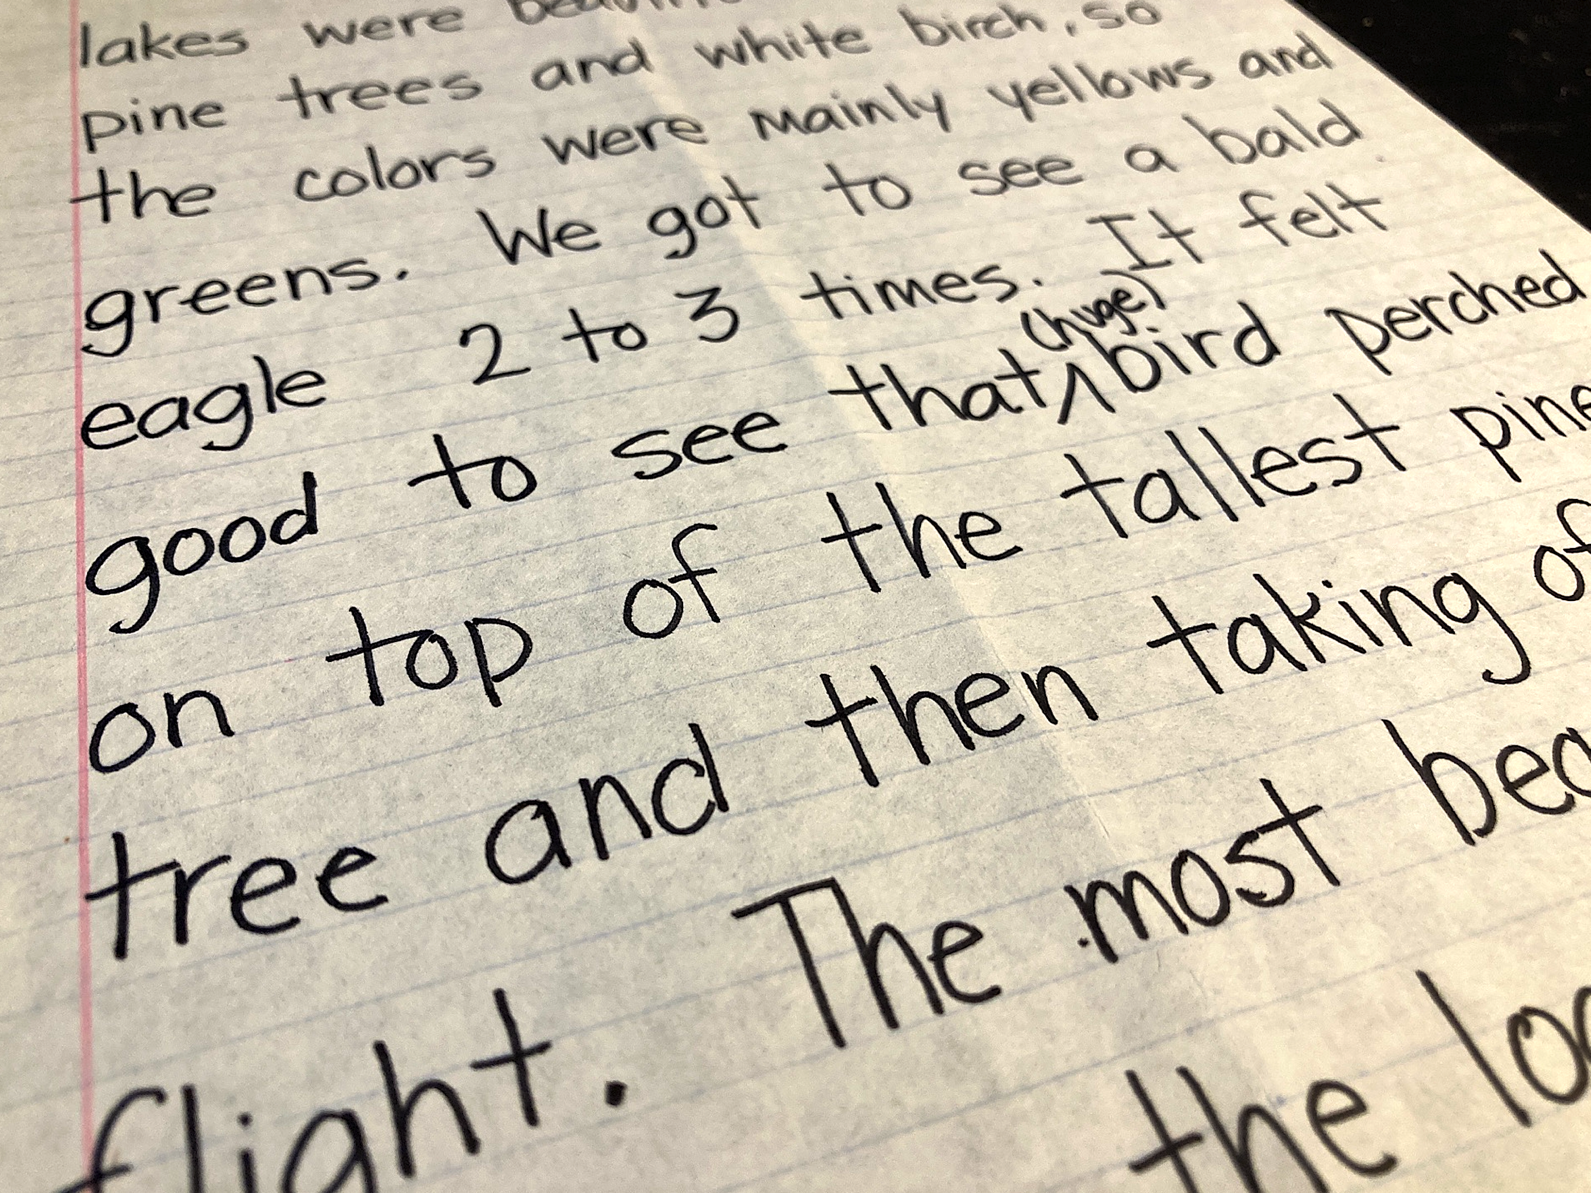 lakes were
pine trees and white birch, so
the colors were mainly yellows and
greens. We got to see a bald
eagle 2 to 3 times. It felt
good to see that ^ (huge) bird perched
on top of the tallest pine
tree and then taking of
flight. The most
the